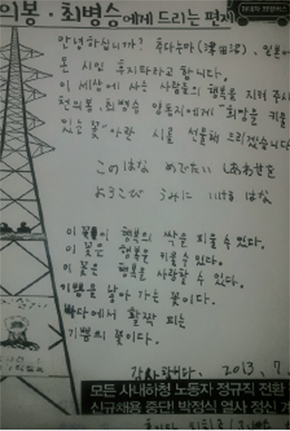 의봉·최병승에게 드리는 편지
희망버스
안녕하십니까? 후다누마(津田沼), 일본에
온 시인 후지타라고 합니다.
이 세상에 사는 사람들의 행복을 지켜 주시
천의봉·최병승 양동지에게 "희망을 키울
있는 꽃"이란 시를 선물해 드리겠습니다
このはな めでたい しあわせを
よろこび うみに いける はな
이 꽃이 행복의 싹을 피울 수 있다.
이 꽃은 행복을 키울 수 있다.
이 꽃은 행복을 사랑할 수 있다.
기쁨을 낳아 가는 꽃이다.
바다에서 활짝 피는
기쁨의 꽃이다.
감사합니다. 2013. 7.
모든 사내하청 노동자 정규직 전환
신규채용 중단! 박정식 열사 정신 계